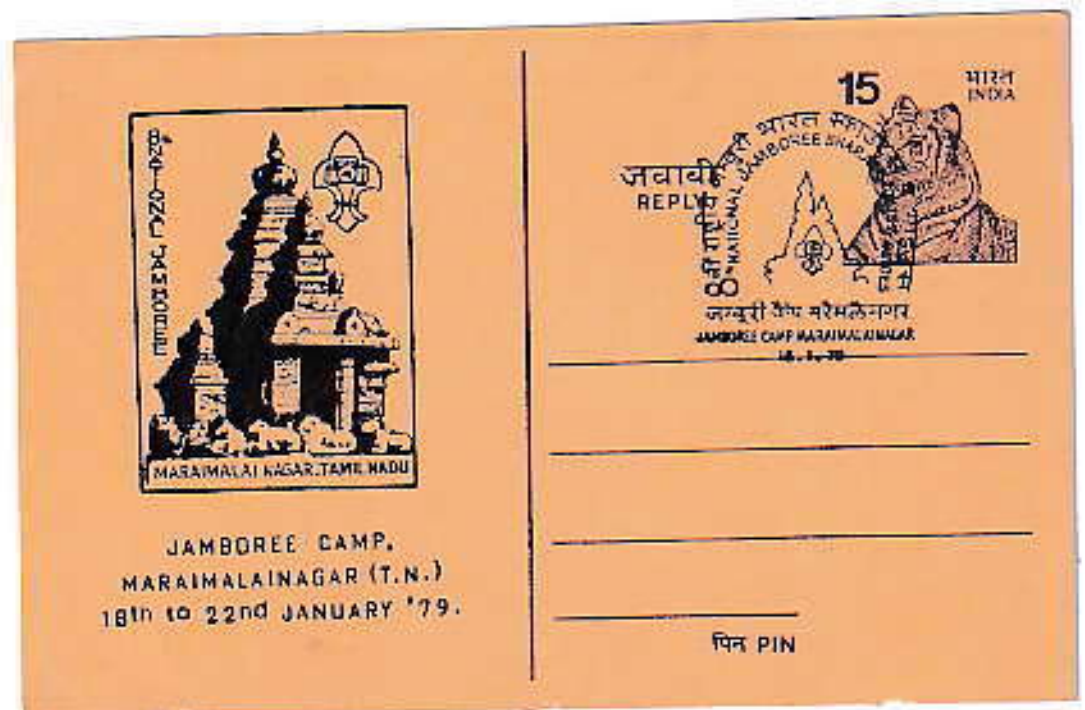 8th NATIONAL JAMBOREE
MARAIMALAI NAGAR. TAMIL NADU
JAMBOREE CAMP,
MARAIMALAINAGAR (T.N.)
18th to 22nd JANUARY '79.
15
भारत
INDIA
जवाबी
REPLY
8वीं राष्ट्रीय जम्बूरी भारत
8th NATIONAL JAMBOREE
जम्बूरी कैंप मरैमलैनगर
JAMBOREE CAMP MARAIMALAINAGAR
पिन PIN